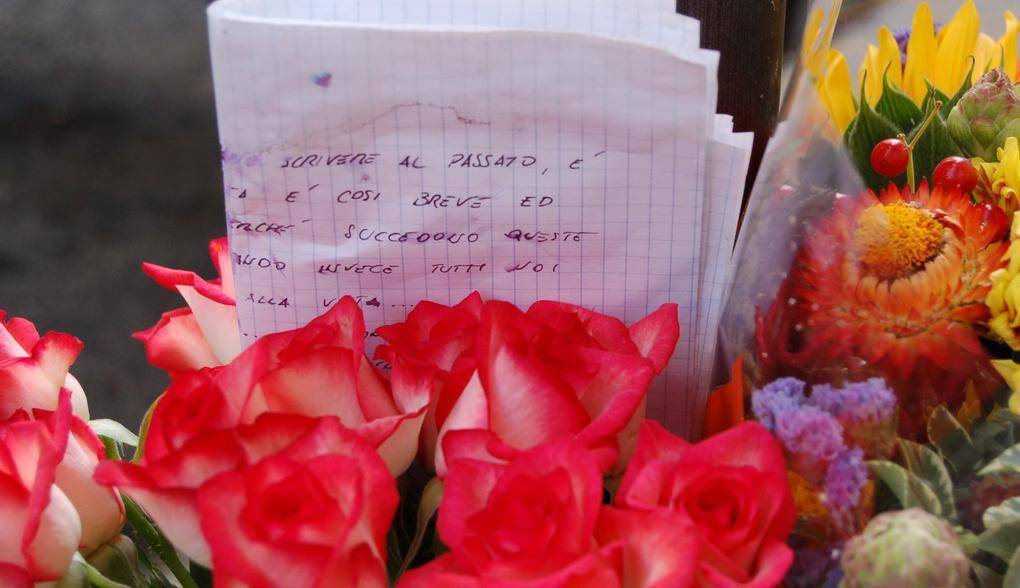 SCRIVERE AL PASSATO, E'
A E' COSI BREVE ED
RCHE' SUCCEDONO QUESTE
NDO INVECE TUTTI NOI
ALLA VITA...